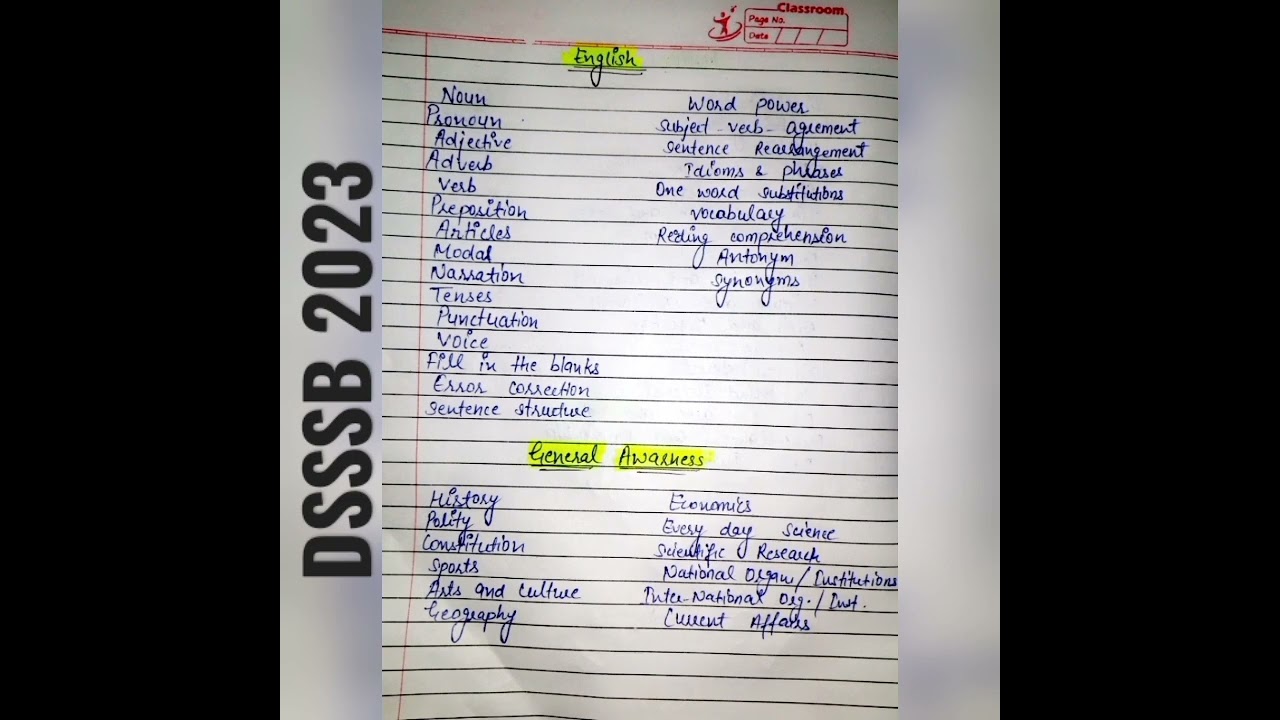 Classroom
Page No.
Date
DSSSB 2023
English
Noun
Pronoun
Adjective
Adverb
Verb
Preposition
Articles
Modal
Narration
Tenses
Punctuation
Voice
Fill in the blanks
Error correction
Sentence structure
Word power
Subject-verb-agrement
Sentence Rearrangement
Idioms & phrases
One word substitutions
Vocabulary
Reading comprehension
Antonym
Synonyms
General Awarness
History
Polity
Constitution
Sports
Arts and culture
Geography
Economics
Every day science
Scientific Research
National Organ/Institutions
Inter-National Org./Inst.
Current Affairs